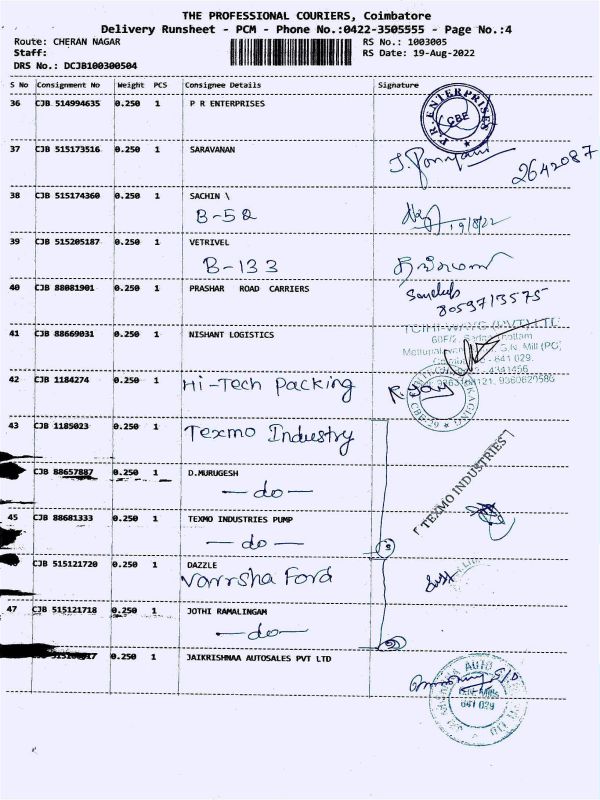 THE PROFESSIONAL COURIERS, Coimbatore
Delivery Runsheet - PCM - Phone No.:0422-3505555 - Page No.:4
Route: CHERAN NAGAR RS No.: 1003005
Staff: RS Date: 19-Aug-2022
DRS No.: DCJB100300504
S No Consignment No Weight PCS Consignee Details Signature
36 CJB 514994635 0.250 1 P R ENTERPRISES
P.R. ENTERPRISES CBE
37 CJB 515173516 0.250 1 SARAVANAN
2642087
38 CJB 515174360 0.250 1 SACHIN \
B-52 19/8/22
39 CJB 515205187 0.250 1 VETRIVEL
B-133
40 CJB 88081901 0.250 1 PRASHAR ROAD CARRIERS
8059713575
41 CJB 88669031 0.250 1 NISHANT LOGISTICS
641 029.
42 CJB 1184274 0.250 1 Hi-Tech Packing
43 CJB 1185023 0.250 1 Texmo Industry
CJB 88657887 0.250 1 D.MURUGESH
-do-
TEXMO INDUSTRIES
45 CJB 88681333 0.250 1 TEXMO INDUSTRIES PUMP
-do-
CJB 515121720 0.250 1 DAZZLE
Varrsha Ford
47 CJB 515121718 0.250 1 JOTHI RAMALINGAM
-do-
0.250 1 JAIKRISHNAA AUTOSALES PVT LTD
641 029